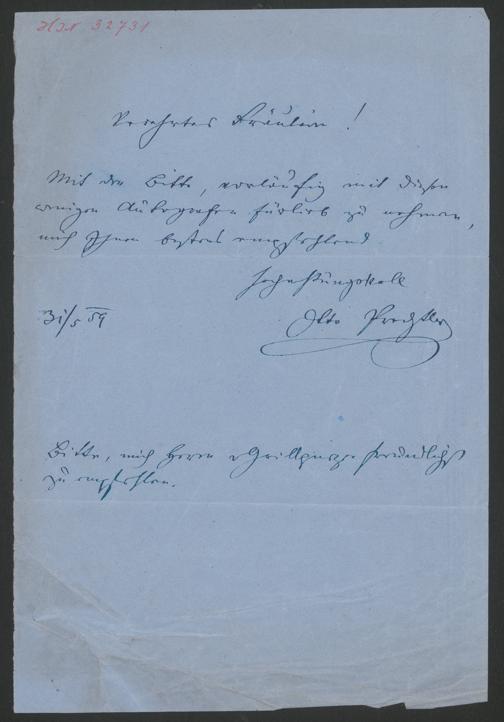 32731
Verehrtes Fräulein!
Mit der Bitte, vorläufig mit diesen
wenigen Autografen fürlieb zu nehmen,
mich Ihnen bestens empfehlend
hochachtungsvoll
31/5 59
Otto Prechtler
Bitte, mich Herrn Grillparzer freundlichst
zu empfehlen.